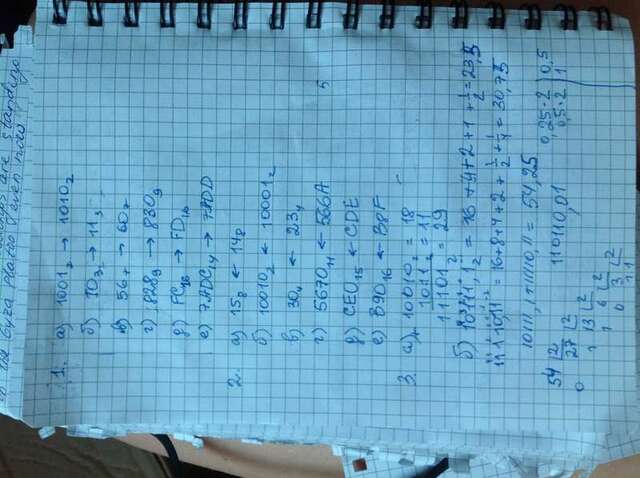 1. а) 1001₂ → 1010₂
б) 10₃ → 11₃
в) 56₇ → 60₇
г) 828₉ → 830₉
д) FC₁₆ → FD₁₆
е) 7ADC₁₄ → 7ADD
2. а) 15₈ ← 14₈
б) 10010₂ ← 10001₂
в) 30₄ ← 23₄
г) 5670₁₁ ← 566A
д) CE0₁₅ ← CDE
е) B90₁₆ ← B8F
5
3. а) 10010₂ = 18
1011₂ = 11
11101₂ = 29
б) 10111,1₂ = 16+4+2+1+½=23,5
11110,11 = 16+8+4+2+½+¼=30,75
10111,1+11110,11 = 54,25
54 |2 110110,01 0,25·2 | 0,5
0 27 |2 0,5·2 | 1
1 13 |2
1 6 |2
0 3 |2
1 1